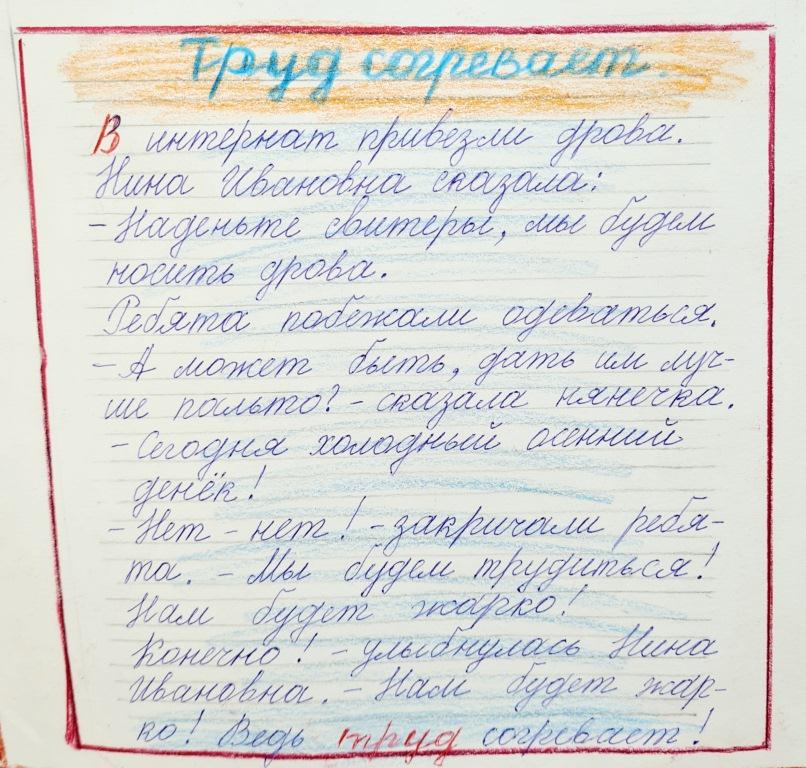 Труд согревает.
В интернат привезли дрова.
Нина Ивановна сказала:
- Наденьте свитеры, мы будем
носить дрова.
Ребята побежали одеваться.
- А может быть, дать им луч-
ше пальто? - сказала нянечка.
- Сегодня холодный осенний
денёк!
- Нет - нет! - закричали ребя-
та. - Мы будем трудиться!
Нам будет жарко!
Конечно! - улыбнулась Нина
Ивановна. - Нам будет жар-
ко! Ведь труд согревает!